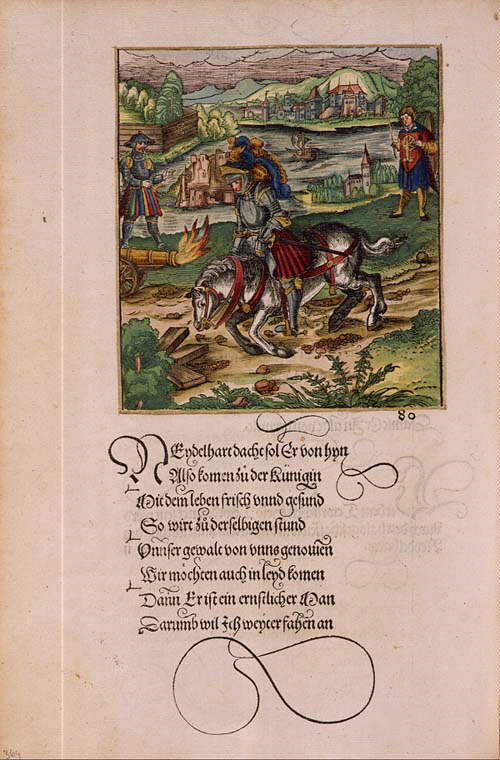 80
NEydelhart dacht sol Er von hyn
Also komen zu der Künigin
Mit dem leben frisch vnnd gesund
So wirt zů derselbigen stund
Vnnser gewalt von vnns genomen
Wir möchten auch in leyd komen
Dann Er ist ein ernstlicher Man
Darumb wil Ich weyter fahen an
364